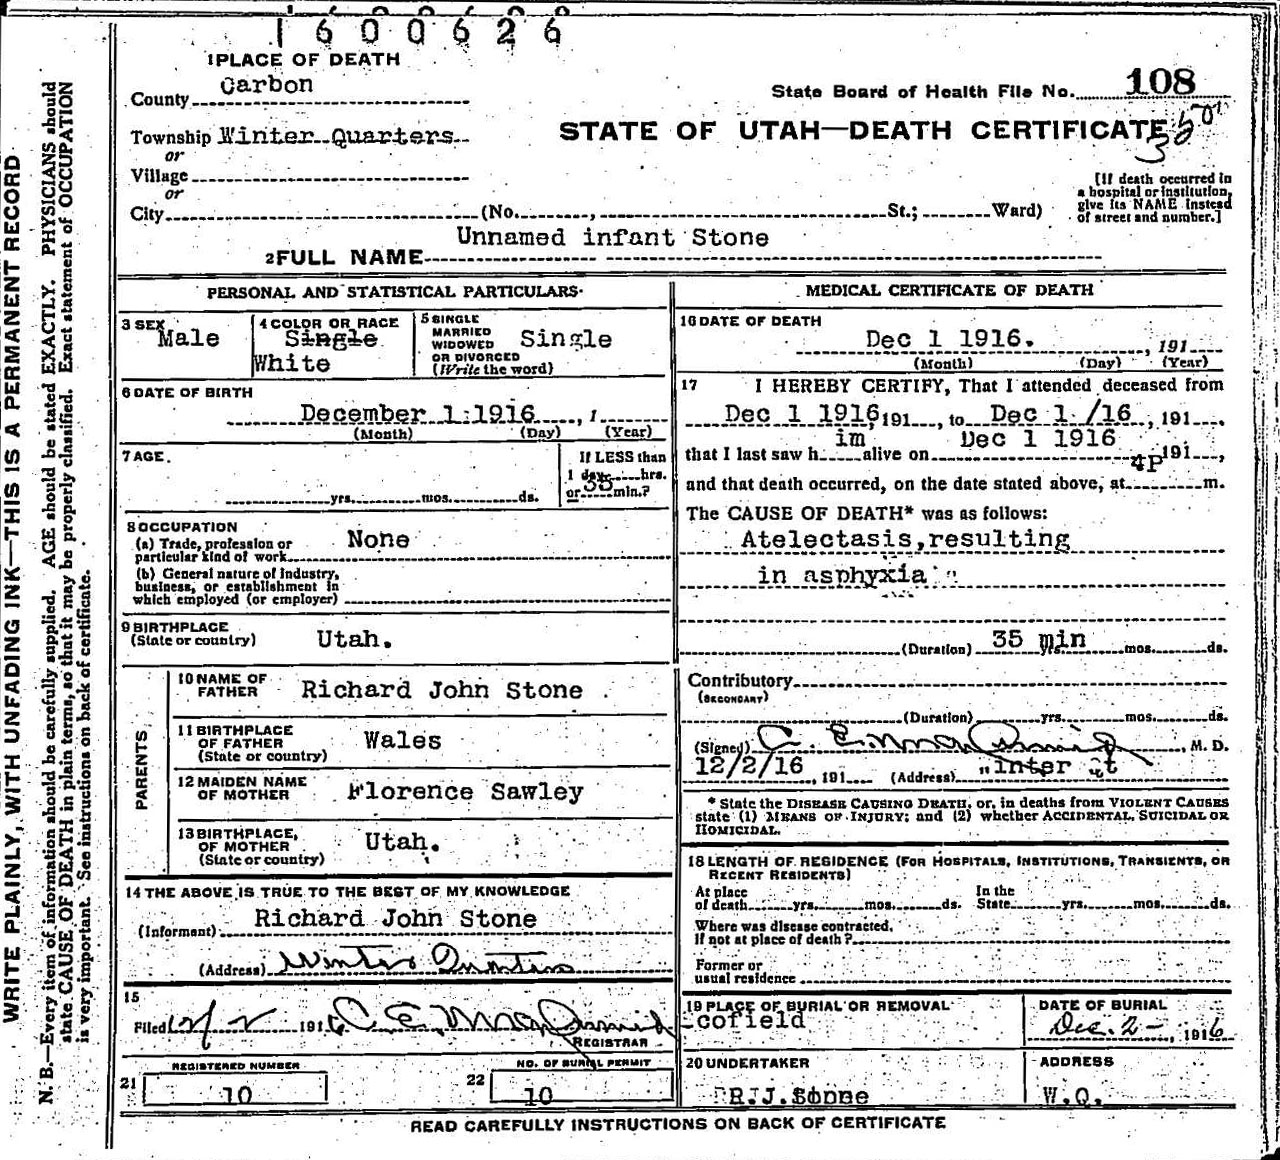 1600626
1 PLACE OF DEATH
County Carbon
State Board of Health File No. 108
Township Winter Quarters
STATE OF UTAH—DEATH CERTIFICATE
or
Village
or
City (No. , St.; Ward)
[If death occurred in
a hospital or institution,
give its NAME instead
of street and number.]
2 FULL NAME Unnamed infant Stone
PERSONAL AND STATISTICAL PARTICULARS
3 SEX Male
4 COLOR OR RACE Single
White
5 SINGLE
MARRIED
WIDOWED
OR DIVORCED
(Write the word) Single
6 DATE OF BIRTH
December 1 1916 , 1
(Month) (Day) (Year)
7 AGE.
yrs. mos. ds.
If LESS than
1 day hrs.
or 35 min.?
8 OCCUPATION
(a) Trade, profession or
particular kind of work None
(b) General nature of industry,
business, or establishment in
which employed (or employer)
9 BIRTHPLACE
(State or country) Utah.
PARENTS
10 NAME OF
FATHER Richard John Stone
11 BIRTHPLACE
OF FATHER
(State or country) Wales
12 MAIDEN NAME
OF MOTHER Florence Sawley
13 BIRTHPLACE,
OF MOTHER
(State or country) Utah.
14 THE ABOVE IS TRUE TO THE BEST OF MY KNOWLEDGE
(Informant) Richard John Stone
(Address) Winter Quarters
15
Filed 12/2 1916 C. E. McDermid
REGISTRAR
21 REGISTERED NUMBER
10
22 NO. OF BURIAL PERMIT
10
MEDICAL CERTIFICATE OF DEATH
16 DATE OF DEATH
Dec 1 1916. , 191
(Month) (Day) (Year)
17 I HEREBY CERTIFY, That I attended deceased from
Dec 1 1916, 191 , to Dec 1 /16 , 191 ,
that I last saw h im alive on Dec 1 1916 191 ,
and that death occurred, on the date stated above, at 4P m.
The CAUSE OF DEATH* was as follows:
Atelectasis, resulting
in asphyxia
(Duration) 35 min yrs. mos. ds.
Contributory
(SECONDARY)
(Duration) yrs. mos. ds.
(Signed) C. E. McDermid , M. D.
12/2/16 , 191 (Address) inter t
* State the DISEASE CAUSING DEATH, or, in deaths from VIOLENT CAUSES
state (1) MEANS OF INJURY; and (2) whether ACCIDENTAL, SUICIDAL OR
HOMICIDAL.
18 LENGTH OF RESIDENCE (FOR HOSPITALS, INSTITUTIONS, TRANSIENTS, OR
RECENT RESIDENTS)
At place
of death yrs. mos. ds.
In the
State yrs. mos. ds.
Where was disease contracted,
if not at place of death?
Former or
usual residence
19 PLACE OF BURIAL OR REMOVAL
cofield
DATE OF BURIAL
Dec. 2 , 1916
20 UNDERTAKER
R.J.Stone
ADDRESS
W.Q.
READ CAREFULLY INSTRUCTIONS ON BACK OF CERTIFICATE
WRITE PLAINLY, WITH UNFADING INK—THIS IS A PERMANENT RECORD
N. B.—Every item of information should be carefully supplied. AGE should be stated EXACTLY. PHYSICIANS should
state CAUSE OF DEATH in plain terms, so that it may be properly classified. Exact statement of OCCUPATION
is very important. See instructions on back of certificate.